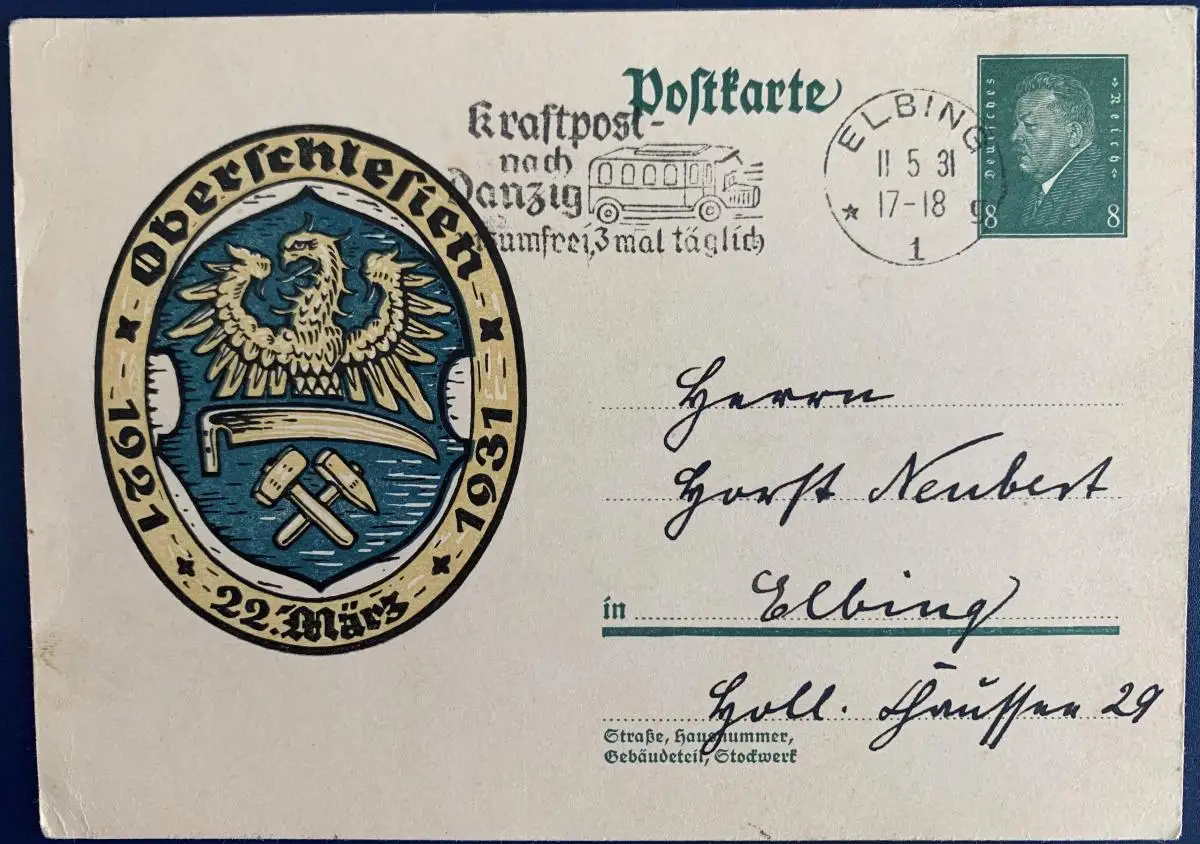 Postkarte
Kraftpost-
nach
Danzig
umfrei, 3 mal täglich
ELBING
11 5 31
17-18 g
1
Deutsches
Reich
8 8
Oberschlesien
1921 1931
22. März
Herrn
Horst Neubert
in Elbing
Holl. Chaussee 29
Straße, Hausnummer,
Gebäudeteil, Stockwerk